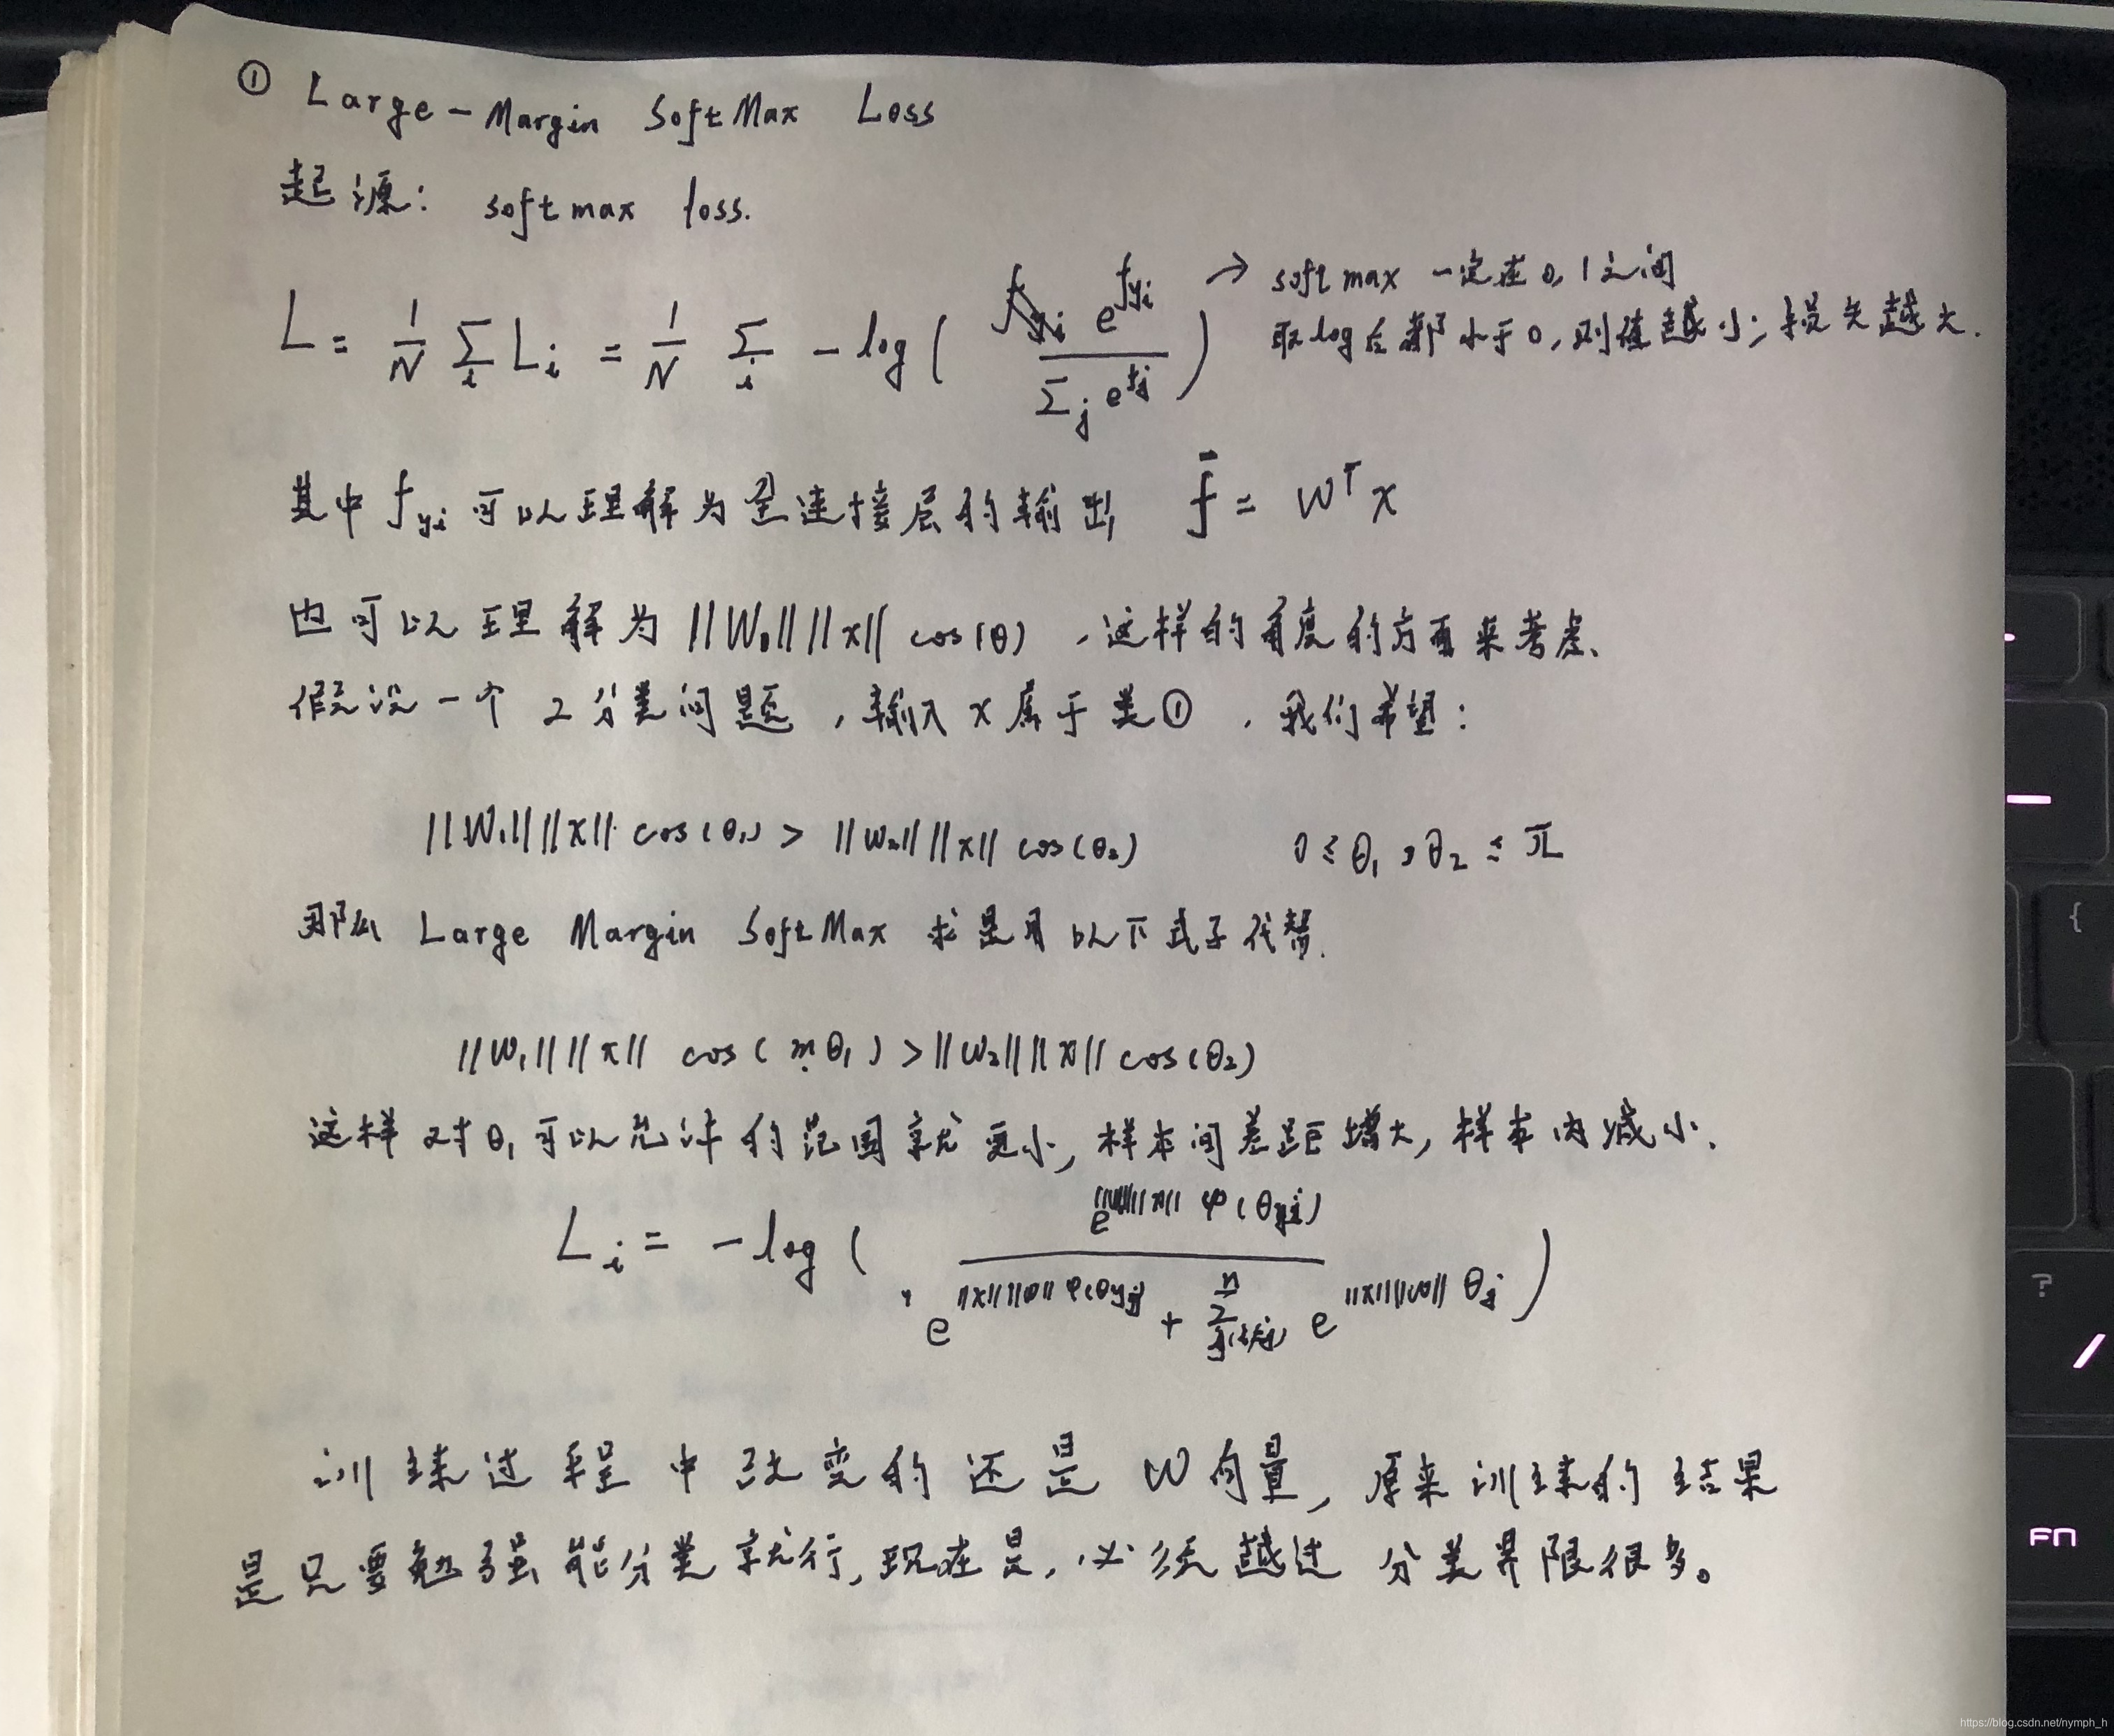 ① Large-Margin SoftMax Loss
起源: softmax loss.
L = 1/N Σ_i L_i = 1/N Σ_i -log( e^{f_{yi}} / Σ_j e^{f_j} ) → softmax 一定在0,1之间
取log后都小于0,则值越小,损失越大.
其中 f_{yi} 可以理解为全连接层的输出 f = W^T x
也可以理解为 ||W_0|| ||x|| cos(θ) ,这样的角度的方面来考虑、
假设一个 2分类问题 ,输入 x 属于类① ,我们希望:
||W_1|| ||x|| cos(θ_1) > ||W_2|| ||x|| cos(θ_2) 0 ≤ θ_1,θ_2 ≤ π
那么 Large Margin SoftMax 求是用以下式子代替.
||W_1|| ||x|| cos(mθ_1) > ||W_2|| ||x|| cos(θ_2)
这样对θ_1可以允许的范围就更小,样本间差距增大,样本内减小.
L_i = -log( e^{||W|| ||x|| φ(θ_{yi})} / e^{||x|| ||W|| φ(θ_{yj})} + Σ^n e^{||x|| ||W|| θ_j} )
训练过程中改变的还是 W向量,原来训练的结果
是只要勉强能分类就行,现在是,必须越过 分类界限很多。
{
?
/
FN
https://blog.csdn.net/nymph_h